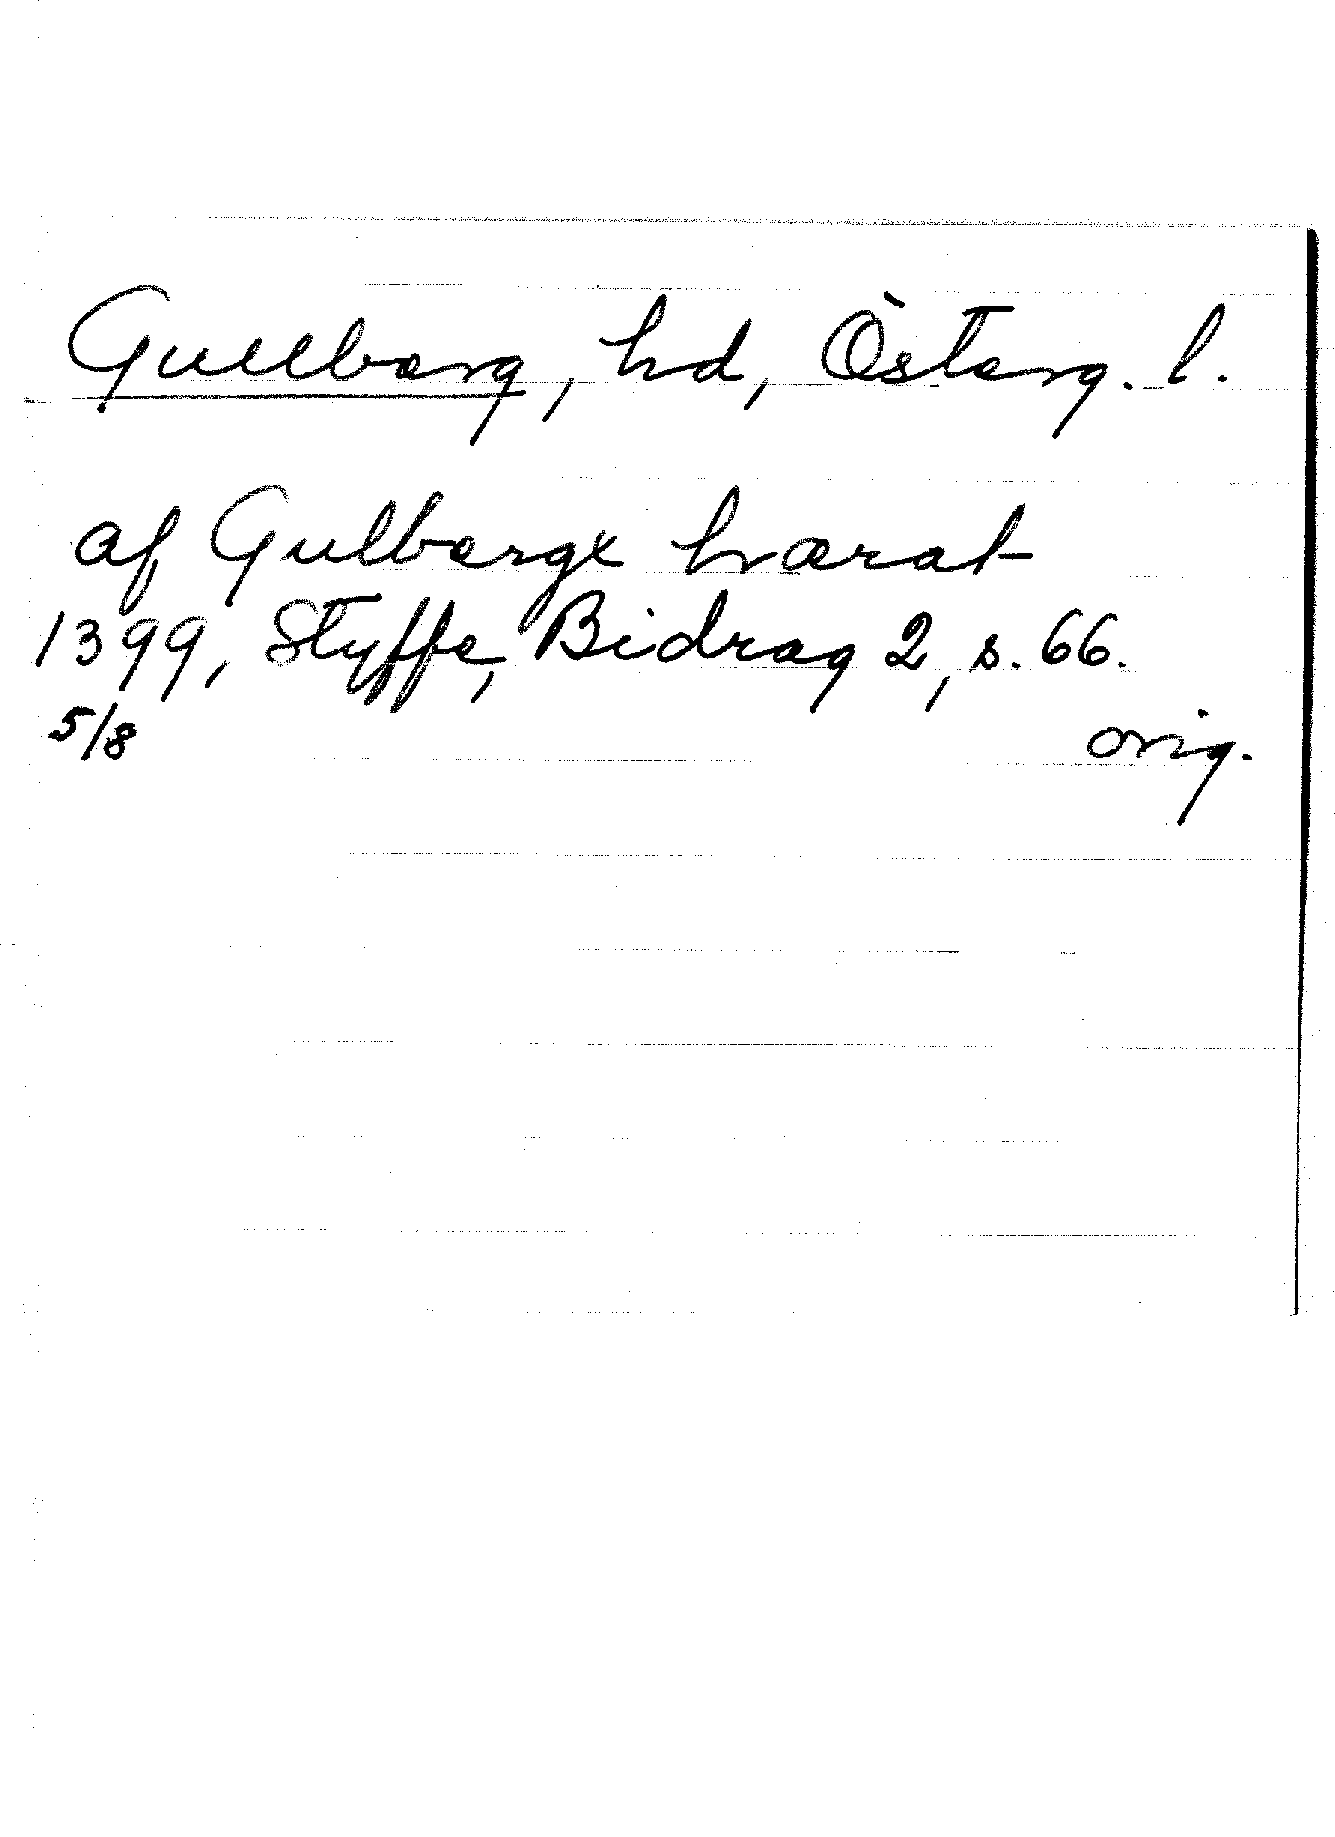 Gullberg, hd, Österg. l.
af Gulbergx hærat
1399, Styffe, Bidrag 2, s. 66.
5/8 orig.